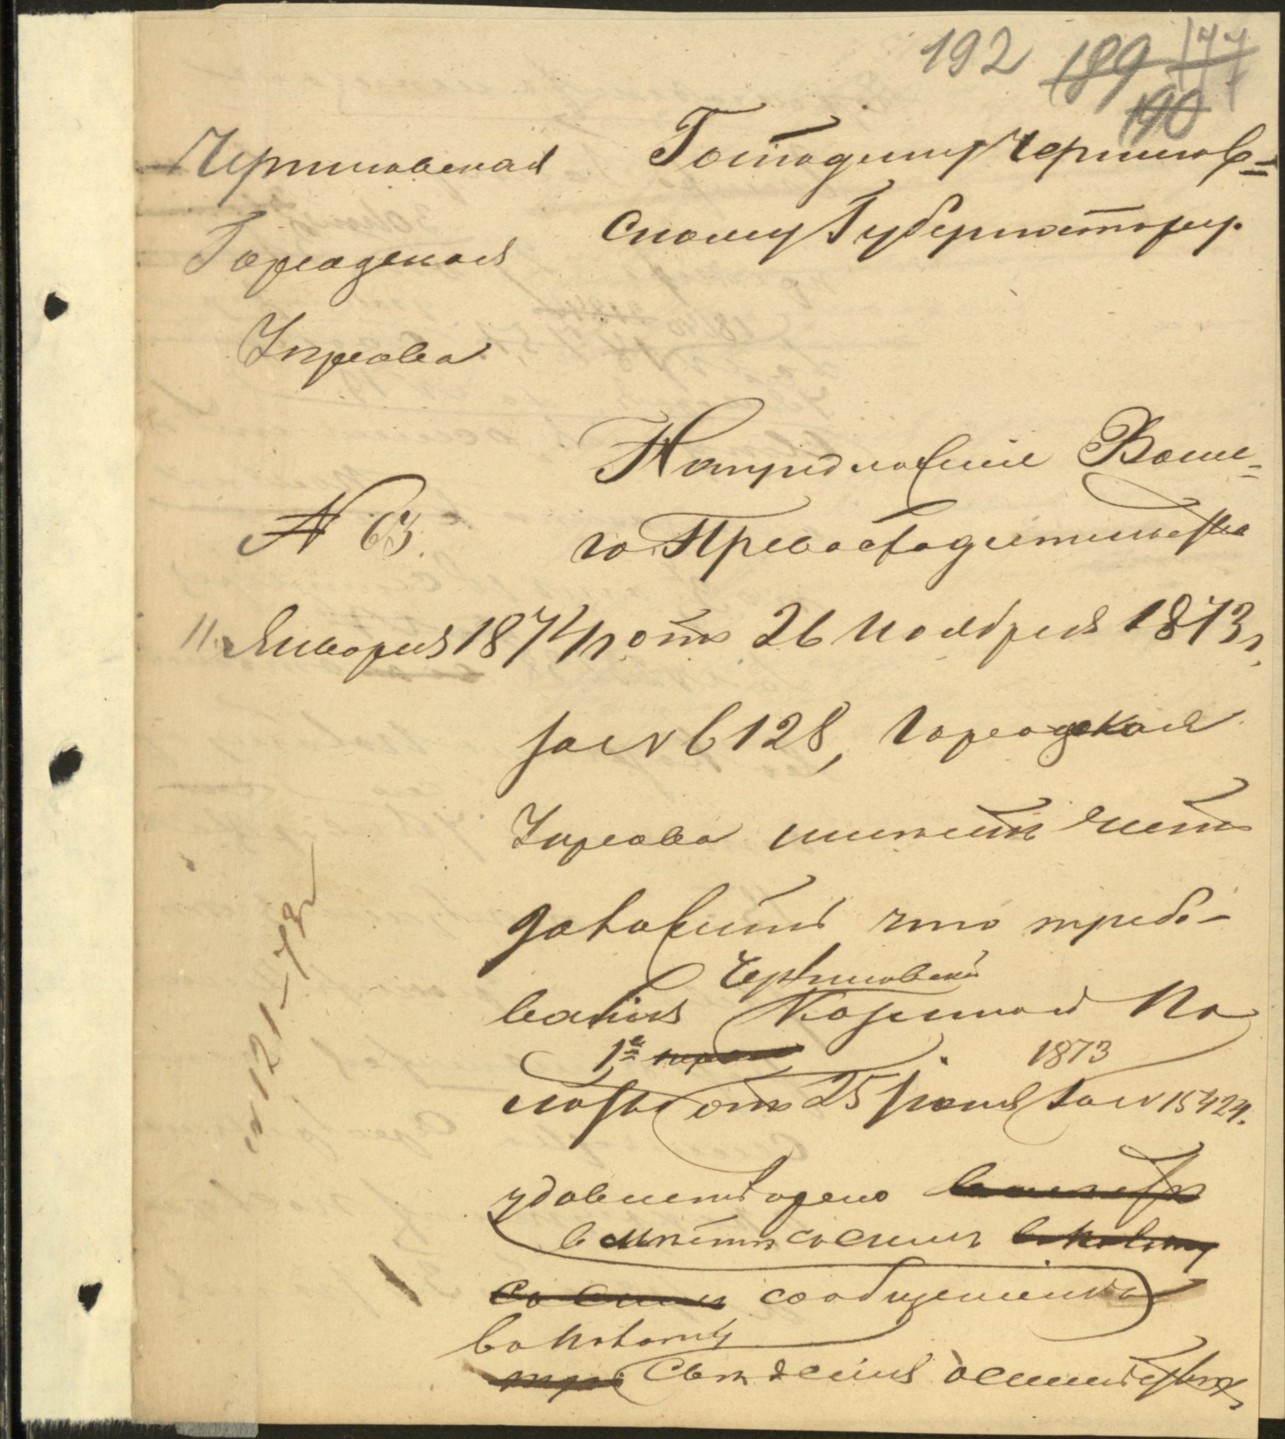 192 189 177
190
Черниговская
Городская
Управа
№ 63.
11 Января 1874 г.
Господину Чернигов=
скому Губернатору.
На предложение Ваше=
го Превосходительства
отъ 26 Ноября 1873 г.
за № 6128, Городская
Управа имеетъ честь
доложить что требо-
вание Черниговской Казенной Па
латы отъ 25 Іюня 1873 за № 15424.
1е
удовлетворено
вместе съ симъ
сообщением
въ Палату
сведения о
№ 121-73 г.